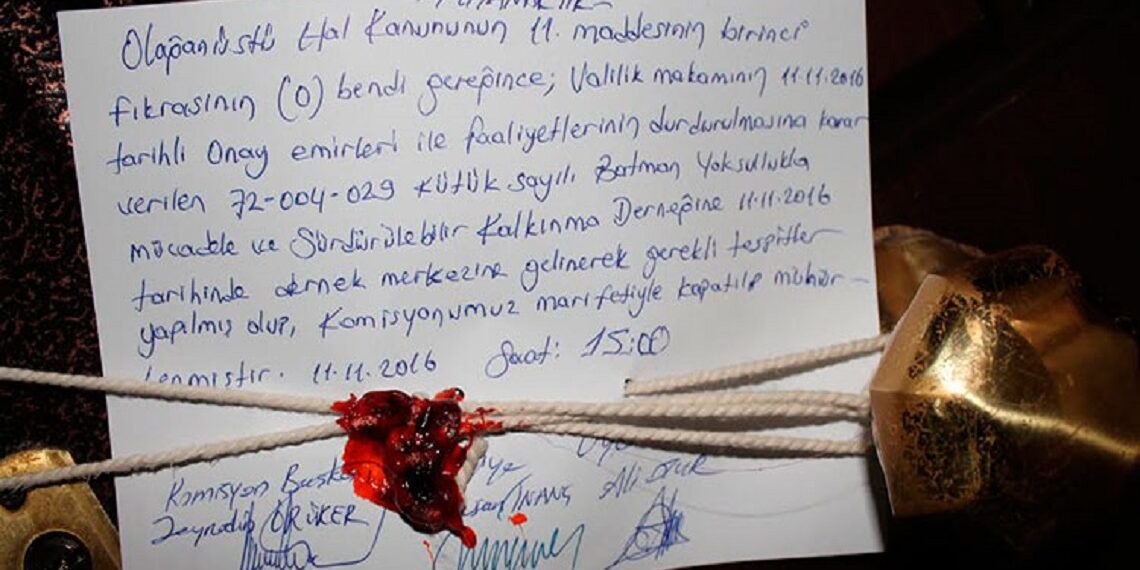 Olağanüstü Hal Kanununun 11. maddesinin birinci
fıkrasının (O) bendi gereğince; Valilik makamının 11.11.2016
tarihli Onay emirleri ile faaliyetlerinin durdurulmasına karar
verilen 72-004-029 kütük sayılı Batman Yoksullukla
mücadele ve Sürdürülebilir Kalkınma Derneğine 11.11.2016
tarihinde dernek merkezine gelinerek gerekli tespitler
yapılmış olup, Komisyonumuz marifetiyle kapatılıp mühür-
lenmiştir. 11.11.2016 Saat: 15:00
Komisyon Üye
ÖRÜKER İNANÇ Ali